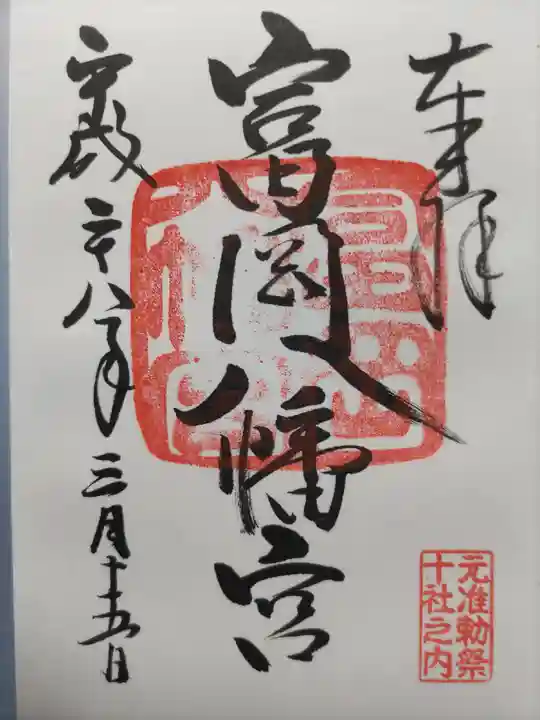 奉拝
富岡八幡宮
平成二十八年三月十五日
元准勅祭
十社之内